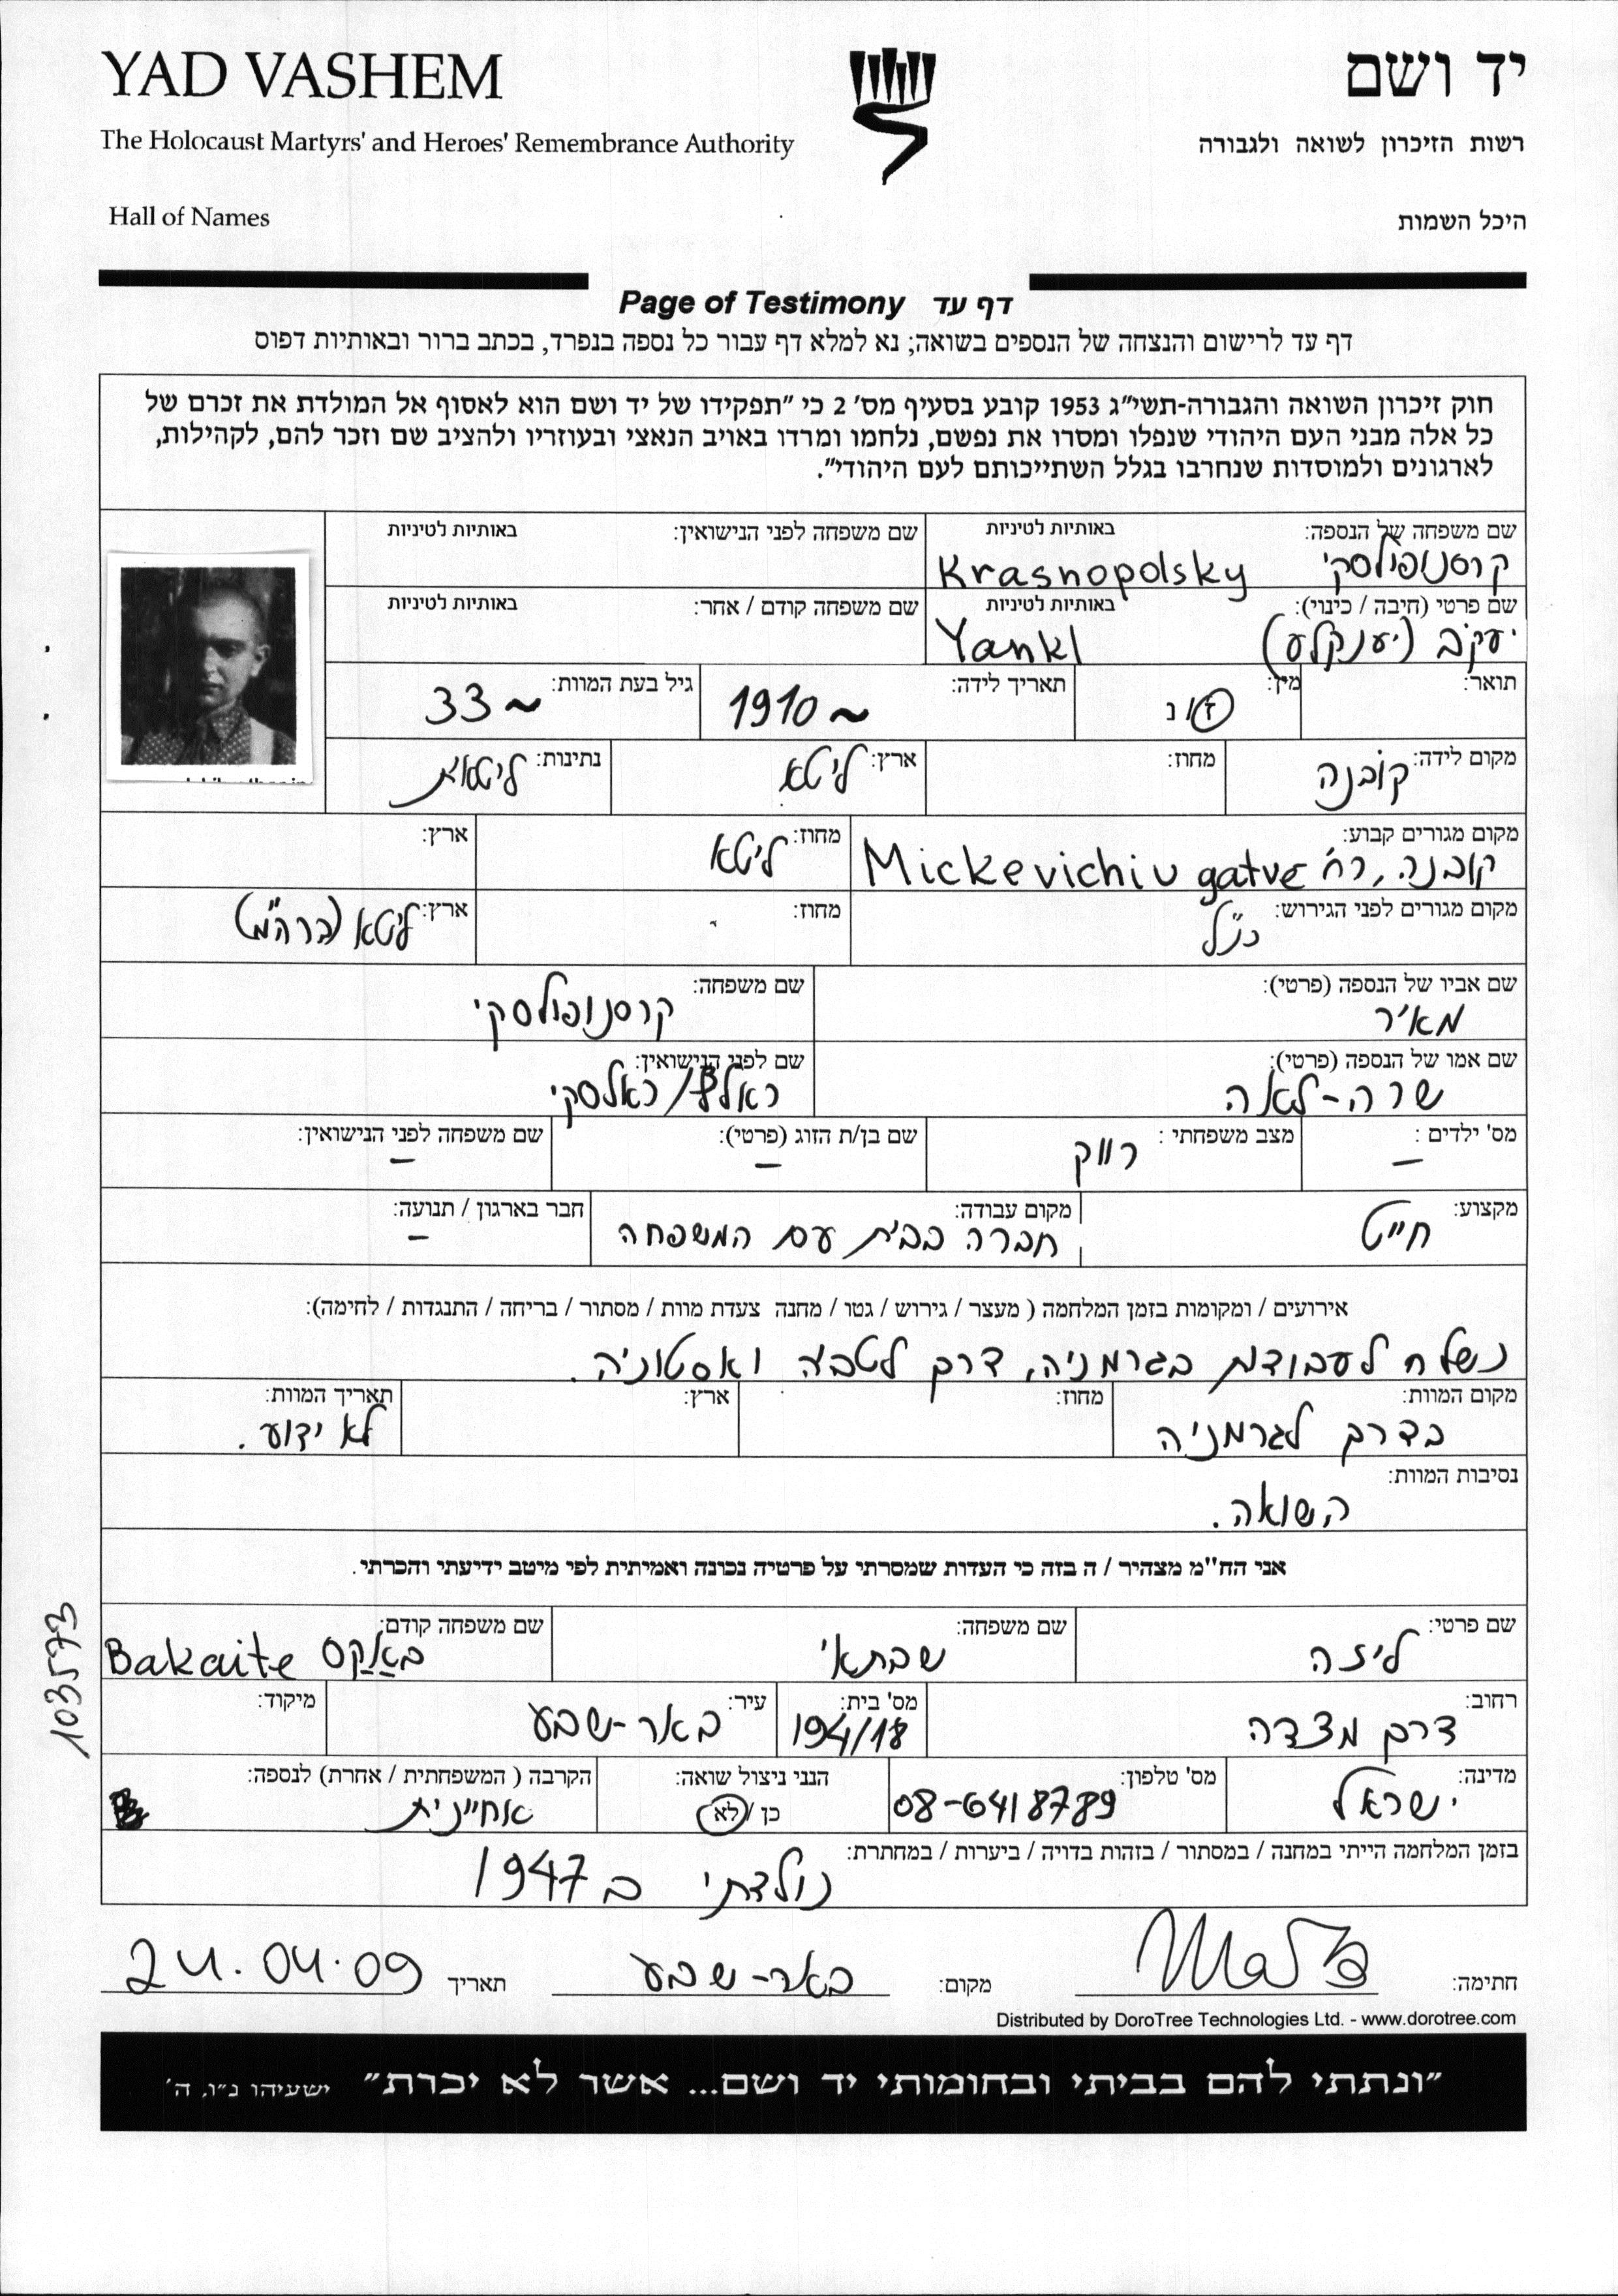 YAD VASHEM
יד ושם
The Holocaust Martyrs' and Heroes' Remembrance Authority
רשות הזיכרון לשואה ולגבורה
Hall of Names
היכל השמות
Page of Testimony דף עד
דף עד לרישום והנצחה של הנספים בשואה; נא למלא דף עבור כל נספה בנפרד, בכתב ברור ובאותיות דפוס
חוק זיכרון השואה והגבורה-תשי"ג 1953 קובע בסעיף מס' 2 כי "תפקידו של יד ושם הוא לאסוף אל המולדת את זכרם של
כל אלה מבני העם היהודי שנפלו ומסרו את נפשם, נלחמו ומרדו באויב הנאצי ובעוזריו ולהציב שם וזכר להם, לקהילות,
לארגונים ולמוסדות שנחרבו בגלל השתייכותם לעם היהודי".
שם משפחה של הנספה: באותיות לטיניות
קרסנופולסקי Krasnopolsky
שם משפחה לפני הנישואין: באותיות לטיניות
שם פרטי (חיבה / כינוי): באותיות לטיניות
יעקב (יענקלע) Yankl
שם משפחה קודם / אחר: באותיות לטיניות
תואר:
מין: ז / נ
תאריך לידה: ~ 1910
גיל בעת המוות: ~ 33
מקום לידה: קובנה
מחוז:
ארץ: ליטא
נתינות: ליטאית
מקום מגורים קבוע:
קובנה, רח' Mickevichiu gatve
מחוז: ליטא
ארץ:
מקום מגורים לפני הגירוש: כנ"ל
מחוז:
ארץ: ליטא (ברה"מ)
שם אביו של הנספה (פרטי): מאיר
שם משפחה: קרסנופולסקי
שם אמו של הנספה (פרטי): שרה-לאה
שם לפני הנישואין: ראלסקי
מס' ילדים : –
מצב משפחתי : רווק
שם בן/ת הזוג (פרטי): –
שם משפחה לפני הנישואין: –
מקצוע: חייט
מקום עבודה: חברה בבית עם המשפחה
חבר בארגון / תנועה: –
אירועים / ומקומות בזמן המלחמה ( מעצר / גירוש / גטו / מחנה צעדת מוות / מסתור / בריחה / התנגדות / לחימה):
נשלח לעבודות בגרמניה, דרך לטביה ואסטוניה.
מקום המוות: בדרך לגרמניה
מחוז:
ארץ:
תאריך המוות: לא ידוע.
נסיבות המוות:
השואה.
אני הח"מ מצהיר / ה בזה כי העדות שמסרתי על פרטיה נכונה ואמיתית לפי מיטב ידיעתי והכרתי.
שם פרטי: ליזה
שם משפחה: שבתאי
שם משפחה קודם: באקס Bakaite
רחוב: דרך מצדה
מס' בית: 194/18
עיר: באר-שבע
מיקוד:
מדינה: ישראל
מס' טלפון: 08-6418789
הנני ניצול שואה: כן / לא
הקרבה ( המשפחתית / אחרת) לנספה: אחיינית
בזמן המלחמה הייתי במחנה / במסתור / בזהות בדויה / ביערות / במחתרת:
נולדתי ב 1947
חתימה:
מקום: באר-שבע
תאריך 24.04.09
103573
Distributed by DoroTree Technologies Ltd. - www.dorotree.com
"ונתתי להם בביתי ובחומותי יד ושם... אשר לא יכרת" ישעיהו נ"ו, ה'